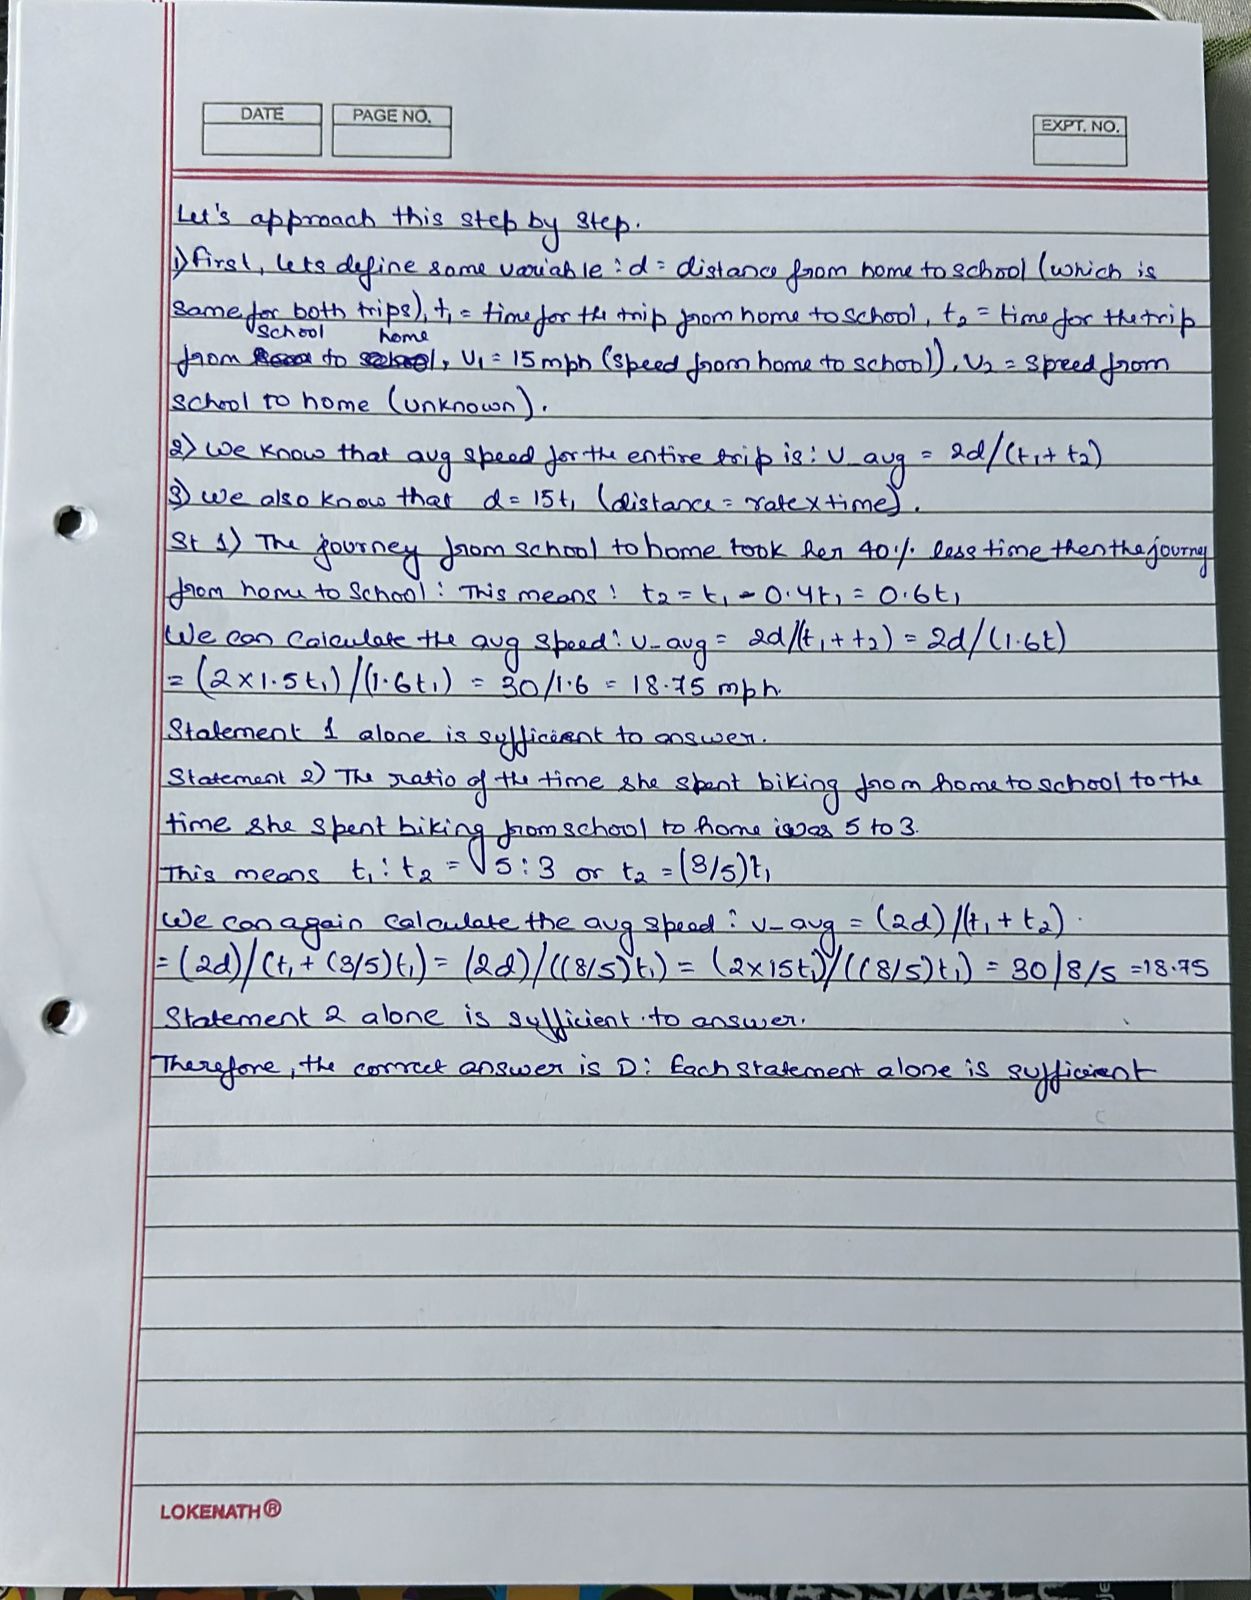 DATE
PAGE NO.
EXPT. NO.
Let's approach this step by step.
1) first, lets define some variable : d = distance from home to school (which is
same for both trips), t₁ = time for the trip from home to school, t₂ = time for the trip
school home
from to , V₁ = 15 mph (speed from home to school)), V₂ = speed from
school to home (unknown).
2) We know that avg speed for the entire trip is : V_avg = 2d/(t₁+ t₂)
3) We also know that d = 15t₁ (distance = rate x time).
St 1) The journey from school to home took her 40% less time then the journey
from home to School : This means : t₂ = t₁ - 0.4t₁ = 0.6t₁
We can calculate the avg speed : V_avg = 2d/(t₁ + t₂) = 2d/(1.6t)
= (2x1.5t₁)/(1.6t₁) = 30/1.6 = 18.75 mph.
Statement 1 alone is sufficient to answer.
Statement 2) The ratio of the time she spent biking from home to school to the
time she spent biking from school to home was 5 to 3.
This means t₁ : t₂ = 5 : 3 or t₂ = (3/5)t₁
We can again calculate the avg speed : V_avg = (2d)/(t₁ + t₂).
= (2d)/(t₁ + (3/5)t₁) = (2d)/((8/5)t₁) = (2x15t₁)/((8/5)t₁) = 30/8/5 = 18.75
Statement 2 alone is sufficient to answer.
Therefore, the correct answer is D : Each statement alone is sufficient
LOKENATH®